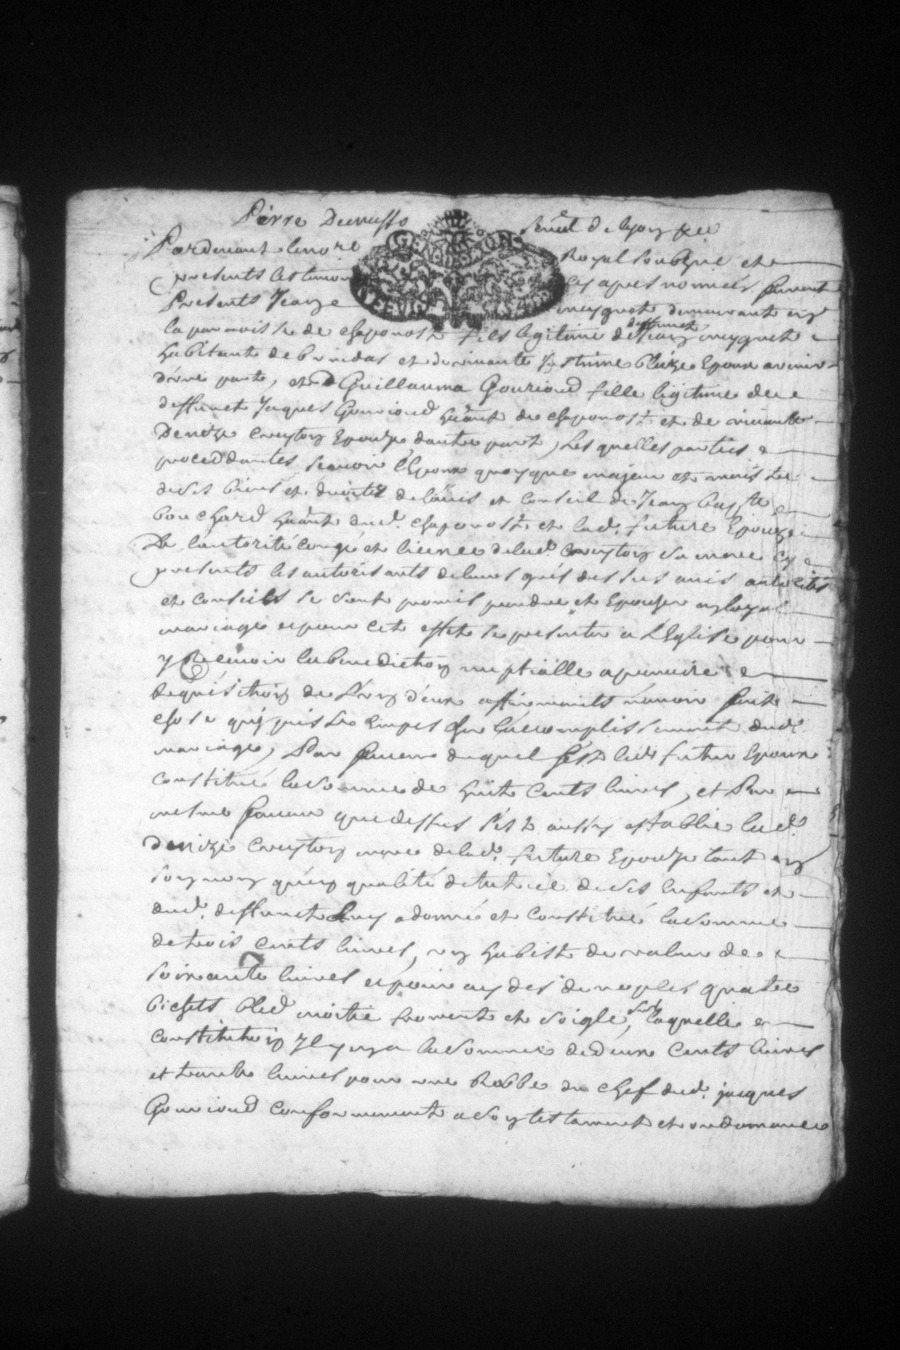 Pierre Decrusso Senél de Lyon &cc
Pardevant le no.re Royal soubzné et
presents les temoins cy apres nommés furent
Presents Jean meyguet demeurant en
la parroisse de chaponost fils legitime de deffunct Jean meyguet
habitant de brindas et de vivante estienne blaize Epoux avenir
d'une part, et Guillauma Gourioud fille legitime de
deffunct Jaques Gourioud h̃ant de chaponost et de vivante
Denize Creyton Epouze dautre part, Lesquelles parties
proceddantes scavoir l'Epoux quoyque majeur et maistre
de ses biens et droits de l'advis et conseil de Jean bap.te
bouchard h̃ant aud. chaponost et lad. future Epouze
De l'autorité congé et licence de lad. Creyton sa mere cy
presents les autorisants de leurs grés dessus avis autorités
et conseils se sont promis prendre et Epouser en loyal
mariage et pour cet effet se presenter a l'Eglise pour
y Recevoir la benediction nuptialle a premiere
Requisition de l'un d'eux affirmants n'avoir fait
chose qui puisse Empescher l'accomplissement dud.
mariage, Par faveur duquel s'est led. futur Epoux
constitué la somme de huit cents livres, et Par
mesme faveur que dessus s'est aussy establie lad.
Denize Creyton mere de lad. future Epouze tant en
son nom qu'en qualité de tutrice de ses enfants et
dud. deffunct Luy a donné et constitué la somme
de trois cents livres, un habist de valeur de
soixante livres et pour aydes de noples quatre
bichets bled moitié froment et soigle, sur laquelle
constitution Il y en a la somme de deux cents livres
et trente livres pour une Robbe du chef dud. jacques
Gourioud conformement a son testament et ordonnance